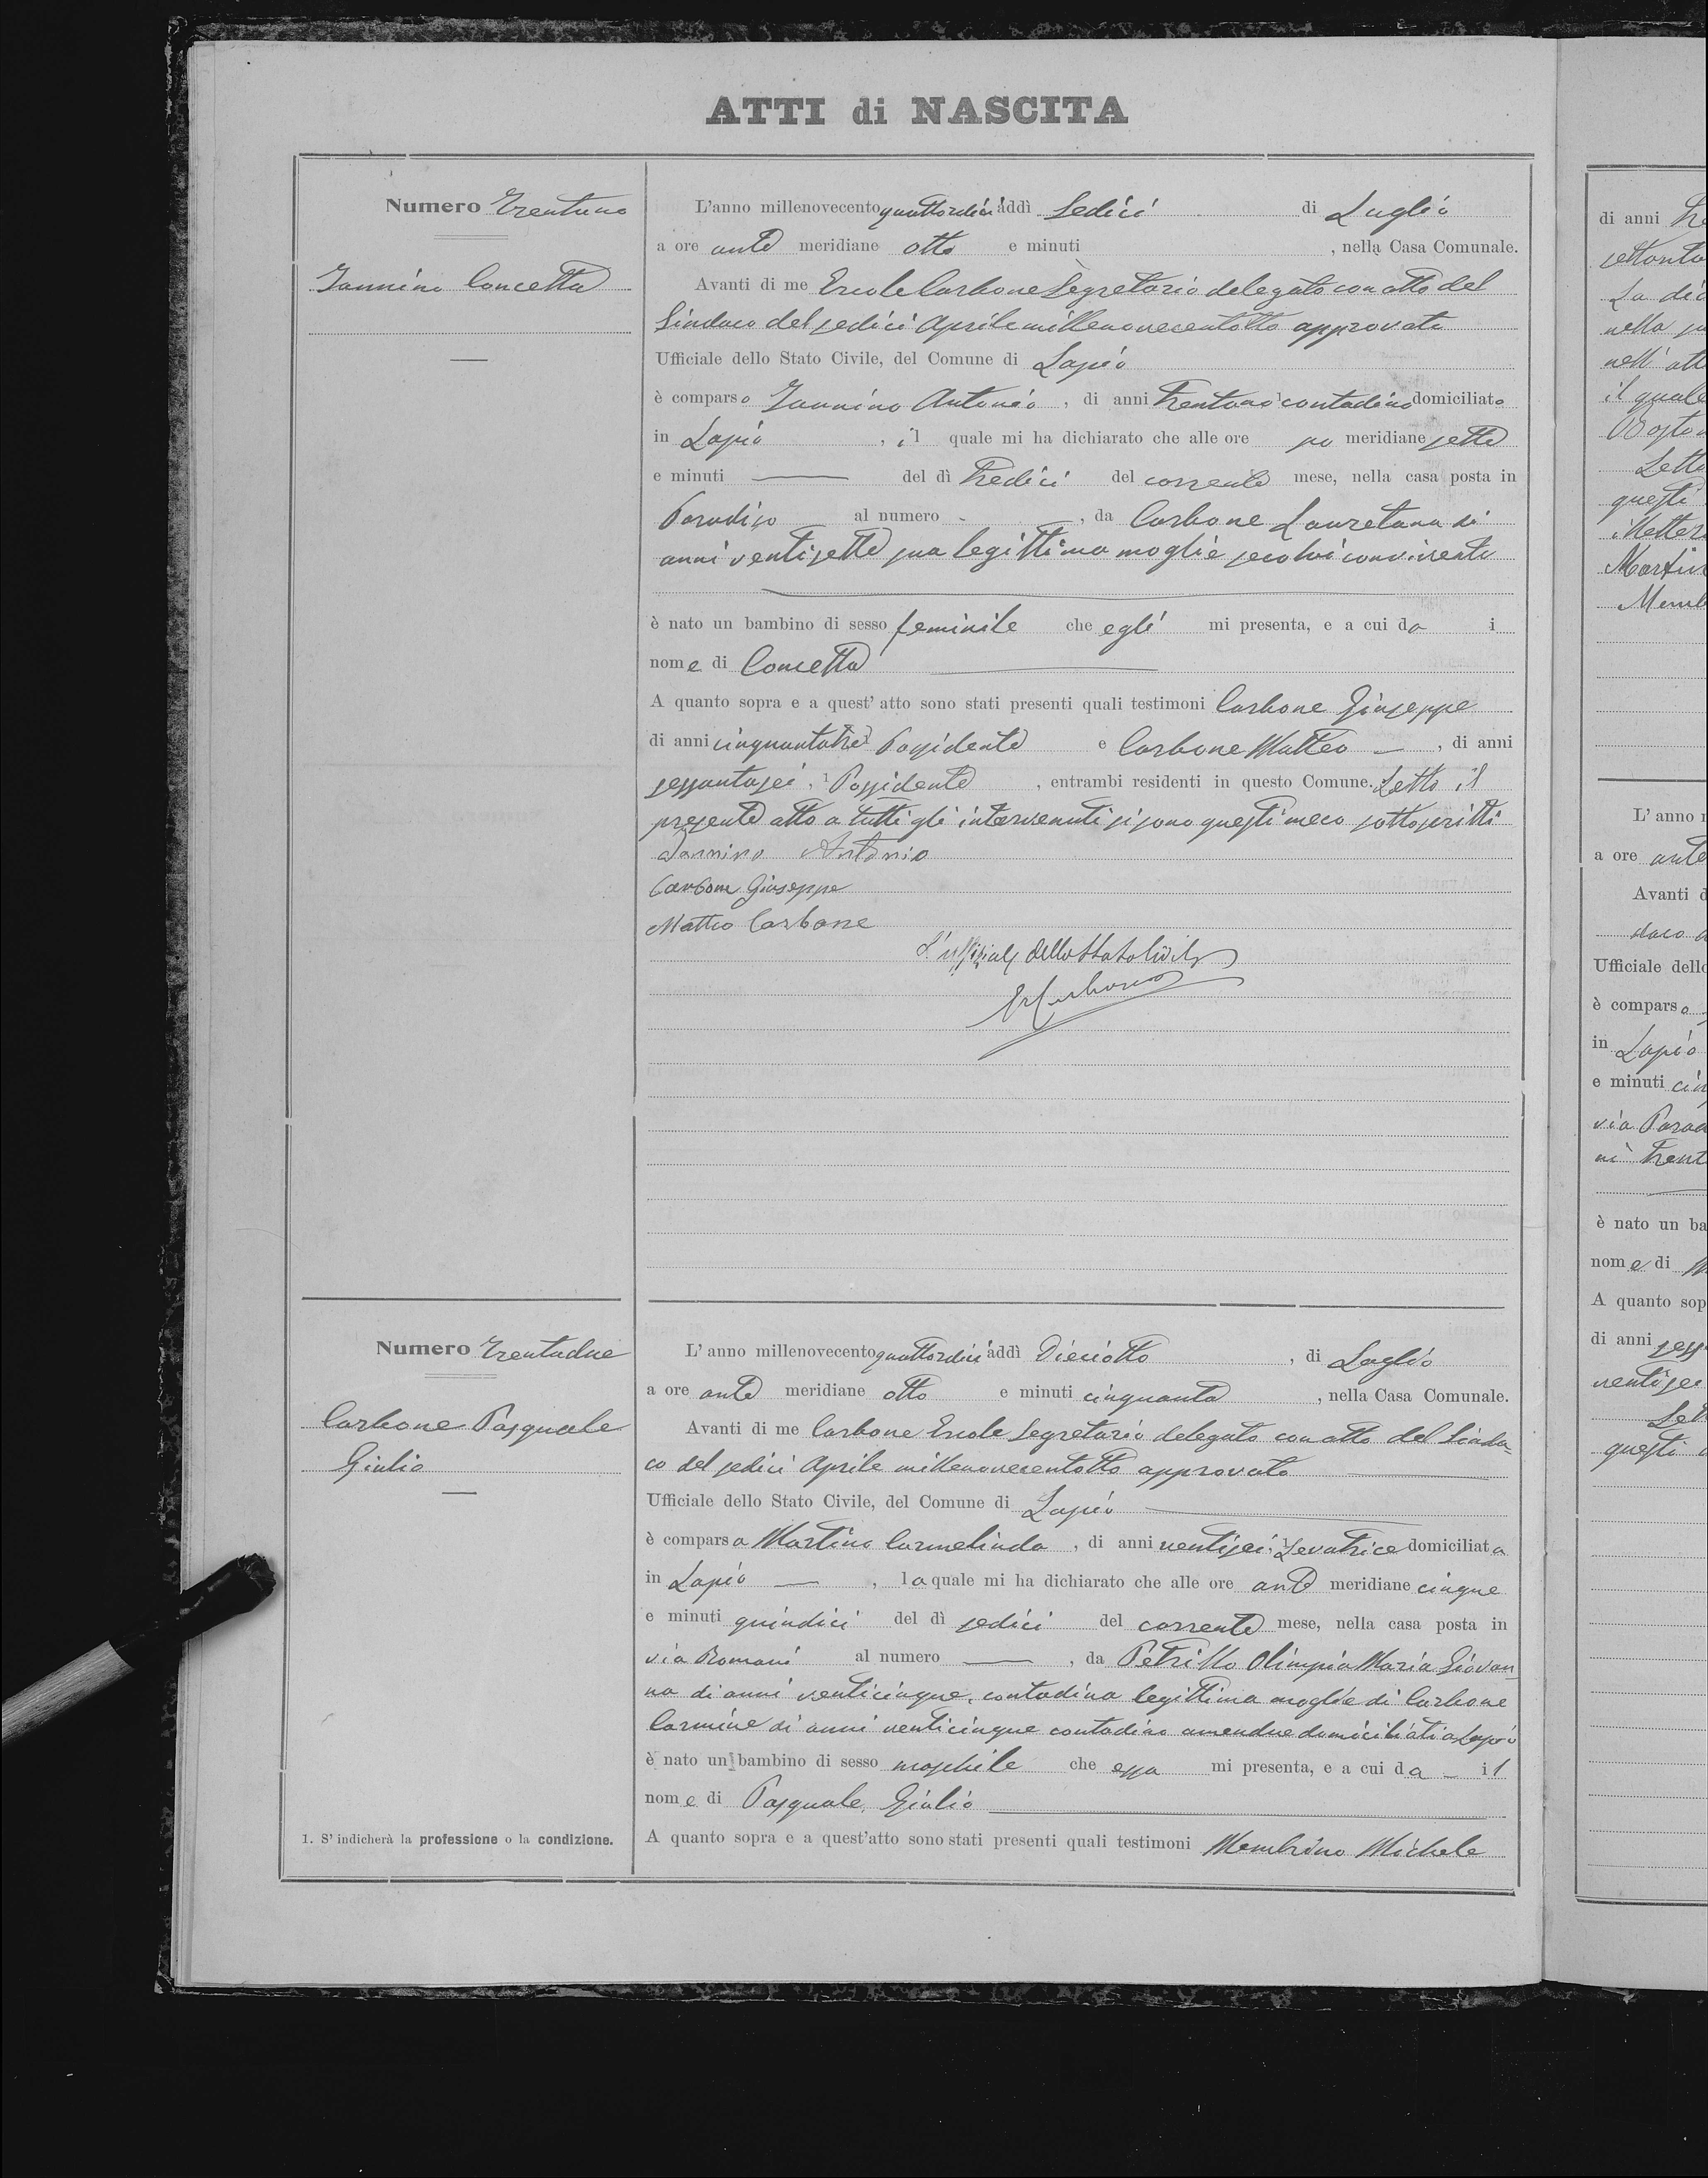 ATTI di NASCITA
Numero Trentuno
Iannino Concetta
L'anno millenovecento quattordici addì Sedici di Luglio
a ore ante meridiane otto e minuti , nella Casa Comunale.
Avanti di me Ercole Carbone Segretario delegato con atto del
Sindaco del sedici Aprile millenovecentotto approvato
Ufficiale dello Stato Civile, del Comune di Lapio
è comparso Iannino Antonio, di anni trentuno contadino domiciliato
in Lapio, il quale mi ha dichiarato che alle ore po meridiane sette
e minuti — del dì tredici del corrente mese, nella casa posta in
Paradiso al numero - , da Carbone Lauretana di
anni ventisette sua legittima moglie seco lui convivente
è nato un bambino di sesso feminile che egli mi presenta, e a cui da i
nome di Concetta
A quanto sopra e a quest'atto sono stati presenti quali testimoni Carbone Giuseppe
di anni cinquantatre Possidente e Carbone Matteo — , di anni
sessantasei, 1 Possidente , entrambi residenti in questo Comune. Letto il
presente atto a tutti gli intervenuti si sono questi meco sottoscritti
Iannino Antonio
Carbone Giuseppe
Matteo Carbone
L'uffiziale dello Stato Civile
E Carbone
Numero Trentadue
Carbone Pasquale
Giulio
L'anno millenovecento quattordici addì Dieciotto , di Luglio
a ore ante meridiane otto e minuti cinquanta , nella Casa Comunale.
Avanti di me Carbone Ercole Segretario delegato con atto del Sinda-
co del sedici Aprile millenovecentotto approvato
Ufficiale dello Stato Civile, del Comune di Lapio
è comparsa Martino Carmelinda , di anni ventisei, 1 Levatrice domiciliata
in Lapio — , la quale mi ha dichiarato che alle ore ante meridiane cinque
e minuti quindici del dì sedici del corrente mese, nella casa posta in
via Romani al numero — , da Petrillo Olimpia Maria Giovan-
na di anni venticinque, contadina legittima moglie di Carbone
Carmine di anni venticinque contadino amendue domiciliati a Lapio
è nato un bambino di sesso maschile che essa mi presenta, e a cui da — il
nome di Pasquale, Giulio
A quanto sopra e a quest'atto sono stati presenti quali testimoni Membrino Michele
1. S'indicherà la professione o la condizione.
di anni
La
nella
il quale
questi
L'anno
a ore ante
Avanti
Ufficiale
è comparso
in Lapio
e minuti
via
è nato un
nome di
A quanto
di anni
questi